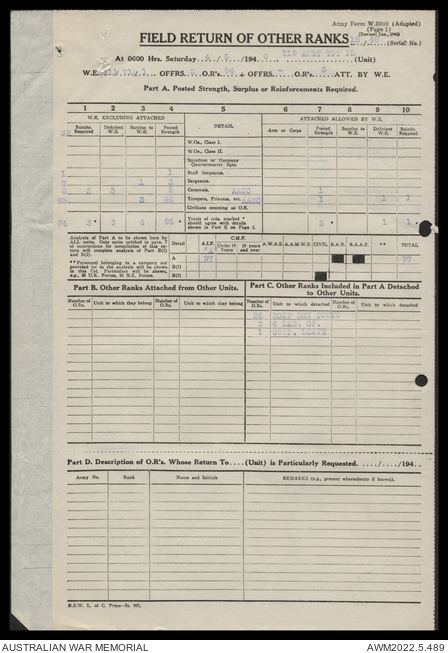 Army Form W.3009 (Adapted)
(Page 1)
FIELD RETURN OF OTHER RANKS
(Serial No.)
At 0600 Hrs. Saturday 119 AUST TPT (Unit)
W.E. OFFRS. O.R's. 94 + OFFRS. O.R's. 3 ATT. BY W.E.
Part A. Posted Strength, Surplus or Reinforcements Required.
1 2 3 4 5 6 7 8 9 10
W.E. EXCLUDING ATTACHED DETAIL ATTACHED ALLOWED BY W.E.
Reinfts. Required Deficient W.E. Surplus to W.E. Posted Strength Arm or Corps Posted Strength Surplus to W.E. Deficient W.E. Reinfts. Required
W.Os., Class I.
W.Os., Class II.
Squadron or Company Quartermaster Sgts.
1 1 Staff Sergeants.
1 3 Sergeants.
Corporals. AACC 1
Troopers, Privates, etc. AACC 1 1 1
Civilians counting as O.R.
94 3* 3 4 95* Totals of cols. marked * should agree with details shown in Part E on Page 2. 2* 1 1*
Analysis of Part A to be shown here by ALL units. Only units notified in para. 7 of instructions for compilation of this return will complete analysis of Part B(1) and B(2).
**Personnel belonging to a category not provided for in the analysis will be shown in this Col. Particulars will be shown, e.g., 20 U.K. Forces, 10 N.Z. Forces.
Detail A.I.F. C.M.F. Under 19 Years 19 years and over A.W.A.S. A.A.M.W.S. CIVIL. R.A.N. R.A.A.F. ** TOTAL
A 97 97
B(1)
B(2)
Part B. Other Ranks Attached from Other Units.
Part C. Other Ranks Included in Part A Detached to Other Units.
Number of O.Rs. Unit to which they belong Number of O.Rs. Unit to which they belong Number of O.Rs. Unit to which detached Number of O.Rs. Unit to which detached
26 BCOF DET TOKYO
2 6 LAB. GP.
1 COMP. LEAVE
Part D. Description of O.R's. Whose Return To....(Unit) is Particularly Requested. ..../..../194...
Army No. Rank Name and Initials REMARKS (e.g., present whereabouts if known).
N.S.W. L. of C. Press
AUSTRALIAN WAR MEMORIAL AWM2022.5.480